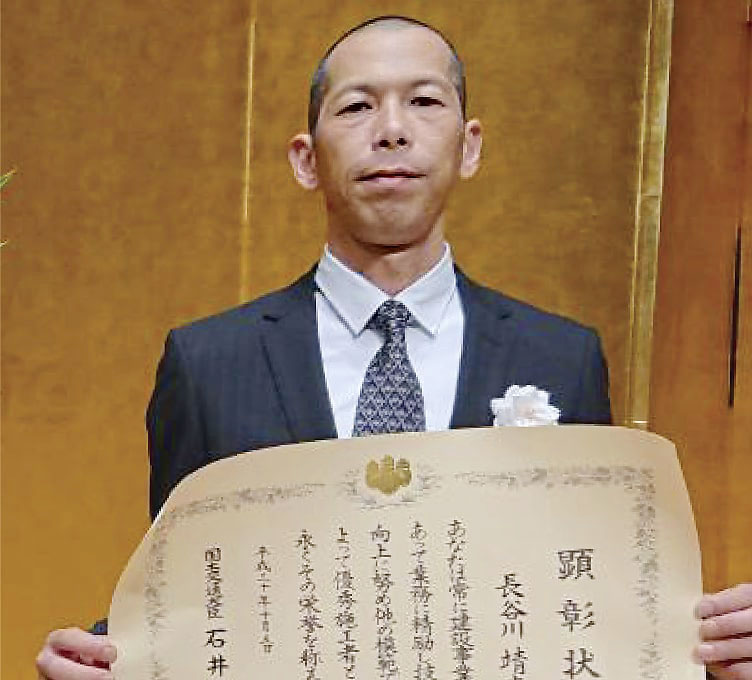 顕彰状
長谷川 靖
あなたは常に建設事業
あって業務に精励し技
向上に努め他の模範
よって優秀施工者と
永くその栄誉を称え
平成三十年十月五日
国土交通大臣 石井